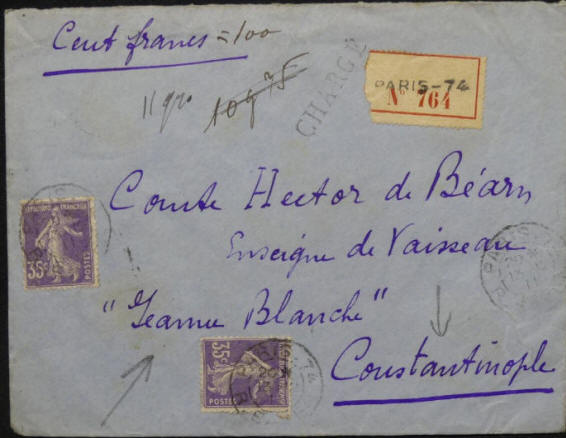 Cent francs = 100
11 grs 10g75
CHARGÉ
PARIS-74
N° 764
Comte Hector de Béarn
Enseigne de Vaisseau
"Jeanne Blanche"
Constantinople
35c
POSTES
PARIS
35c
POSTES
PARIS 74